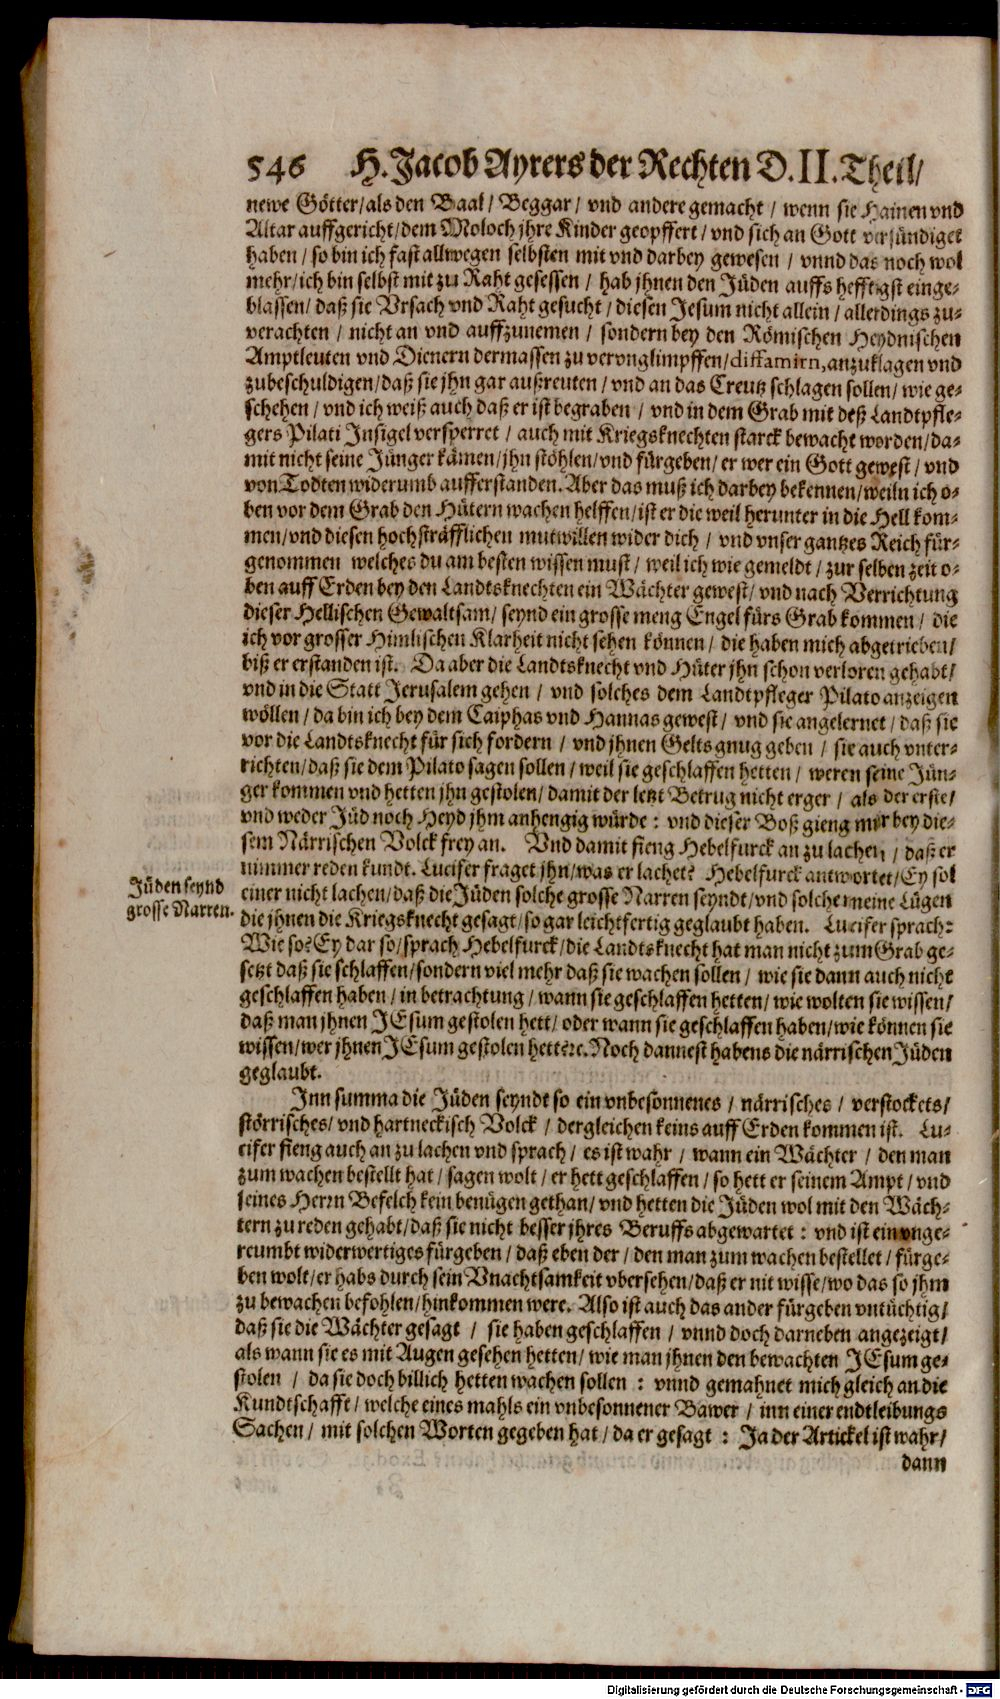 546 H. Jacob Ayrers der Rechten D. II. Theil/
newe Götter/als den Baal/ Beggar/ vnd andere gemacht / wenn sie Hainen vnd
Altar auffgericht/dem Moloch jhre Kinder geopffert/ vnd sich an Gott versündiget
haben / so bin ich fast allwegen selbsten mit vnd darbey gewesen / vnnd das noch wol
mehr/ich bin selbst mit zu Raht gesessen / hab jhnen den Jüden auffs hefftigst einge-
blassen/ daß sie Vrsach vnd Raht gesucht/ diesen Jesum nicht allein / allerdings zu-
verachten / nicht an vnd auffzunemen / sondern bey den Römischen Heydnischen
Amptleuten vnd Dienern dermassen zu verunglimpffen/diffamirn, anzuklagen vnd
zubeschuldigen/daß sie jhn gar außreuten / vnd an das Creutz schlagen sollen/ wie ge-
schehen / vnd ich weiß auch daß er ist begraben / vnd in dem Grab mit deß Landtpfle-
gers Pilati Insigel versperret / auch mit Kriegsknechten starck bewacht worden/da-
mit nicht seine Jünger kämen/jhn stöhlen/vnd fürgeben/ er wer ein Gott gewest / vnd
von Todten widerumb aufferstanden. Aber das muß ich darbey bekennen/weiln ich o-
ben vor dem Grab den Hütern wachen helffen/ist er die weil herunter in die Hell kom-
men/vnd diesen hochsträfflichen mutwillen wider dich / vnd vnser gantzes Reich für-
genommen welches du am besten wissen must / weil ich wie gemeldt / zur selben zeit o-
ben auff Erden bey den Landtsknechten ein Wächter gewest/ vnd nach Verrichtung
dieser Hellischen Gewaltsam/ seynd ein grosse meng Engel fürs Grab kommen / die
ich vor grosser Himlischen Klarheit nicht sehen können / die haben mich abgetrieben/
biß er erstanden ist. Da aber die Landtsknecht vnd Hüter jhn schon verloren gehabt/
vnd in die Statt Jerusalem gehen / vnd solches dem Landtpfleger Pilato anzeigen
wöllen / da bin ich bey dem Caiphas vnd Hannas gewest/ vnd sie angelernet / daß sie
vor die Landtsknecht für sich fordern / vnd jhnen Gelts gnug geben / sie auch vnter-
richten/daß sie dem Pilato sagen sollen / weil sie geschlaffen hetten / weren seine Jün-
ger kommen vnd hetten jhn gestolen/ damit der letzt Betrug nicht erger / als der erste/
vnd weder Jüd noch Heyd jhm anhengig würde : vnd dieser Boß gieng mir bey die-
sem Närrischen Volck frey an. Vnd damit fieng Hebelfurck an zu lachen / daß er
nimmer reden kundt. Lucifer fraget jhn/was er lachet? Hebelfurck antwortet/Ey sol
einer nicht lachen/daß die Jüden solche grosse Narren seyndt/vnd solche meine Lügen
die jhnen die Kriegsknecht gesagt/so gar leichtfertig geglaubt haben. Lucifer sprach:
Wie so? Ey dar so/sprach Hebelfurck/die Landtsknecht hat man nicht zum Grab ge-
setzt daß sie schlaffen/sondern viel mehr daß sie wachen sollen / wie sie dann auch nicht
geschlaffen haben / in betrachtung / wann sie geschlaffen hetten/ wie wolten sie wissen/
daß man jhnen JEsum gestolen hett/ oder wann sie geschlaffen haben/wie können sie
wissen/wer jhnen JEsum gestolen hett etc. Noch dannest habens die närrischen Jüden
geglaubt.
Jüden seynd
grosse Narren.
Inn summa die Jüden seyndt so ein vnbesonnenes / närrisches / verstockets/
störrisches/ vnd hartneckisch Volck / dergleichen keins auff Erden kommen ist. Lu-
cifer fieng auch an zu lachen vnd sprach / es ist wahr / wann ein Wächter / den man
zum wachen bestellt hat / sagen wolt / er hett geschlaffen / so hett er seinem Ampt / vnd
seines Herrn Befelch kein benügen gethan/ vnd hetten die Jüden wol mit den Wäch-
tern zu reden gehabt/daß sie nicht besser jhres Beruffs abgewartet : vnd ist ein vnge-
reumbt widerwertiges fürgeben / daß eben der / den man zum wachen bestellet / fürge-
ben wolt/er habs durch sein Vnachtsamkeit vbersehen/daß er nit wisse/wo das so jhm
zu bewachen befohlen/hinkommen were. Also ist auch das ander fürgeben vntüchtig/
daß sie die Wächter gesagt / sie haben geschlaffen / vnnd doch darneben angezeigt/
als wann sie es mit Augen gesehen hetten/ wie man jhnen den bewachten JEsum ge-
stolen / da sie doch billich hetten wachen sollen : vnnd gemahnet mich gleich an die
Kundtschafft/ welche eines mahls ein vnbesonnener Bawer / inn einer endtleibungs
Sachen / mit solchen Worten gegeben hat / da er gesagt : Ja der Artickel ist wahr/
dann
Digitalisierung gefördert durch die Deutsche Forschungsgemeinschaft - DFG